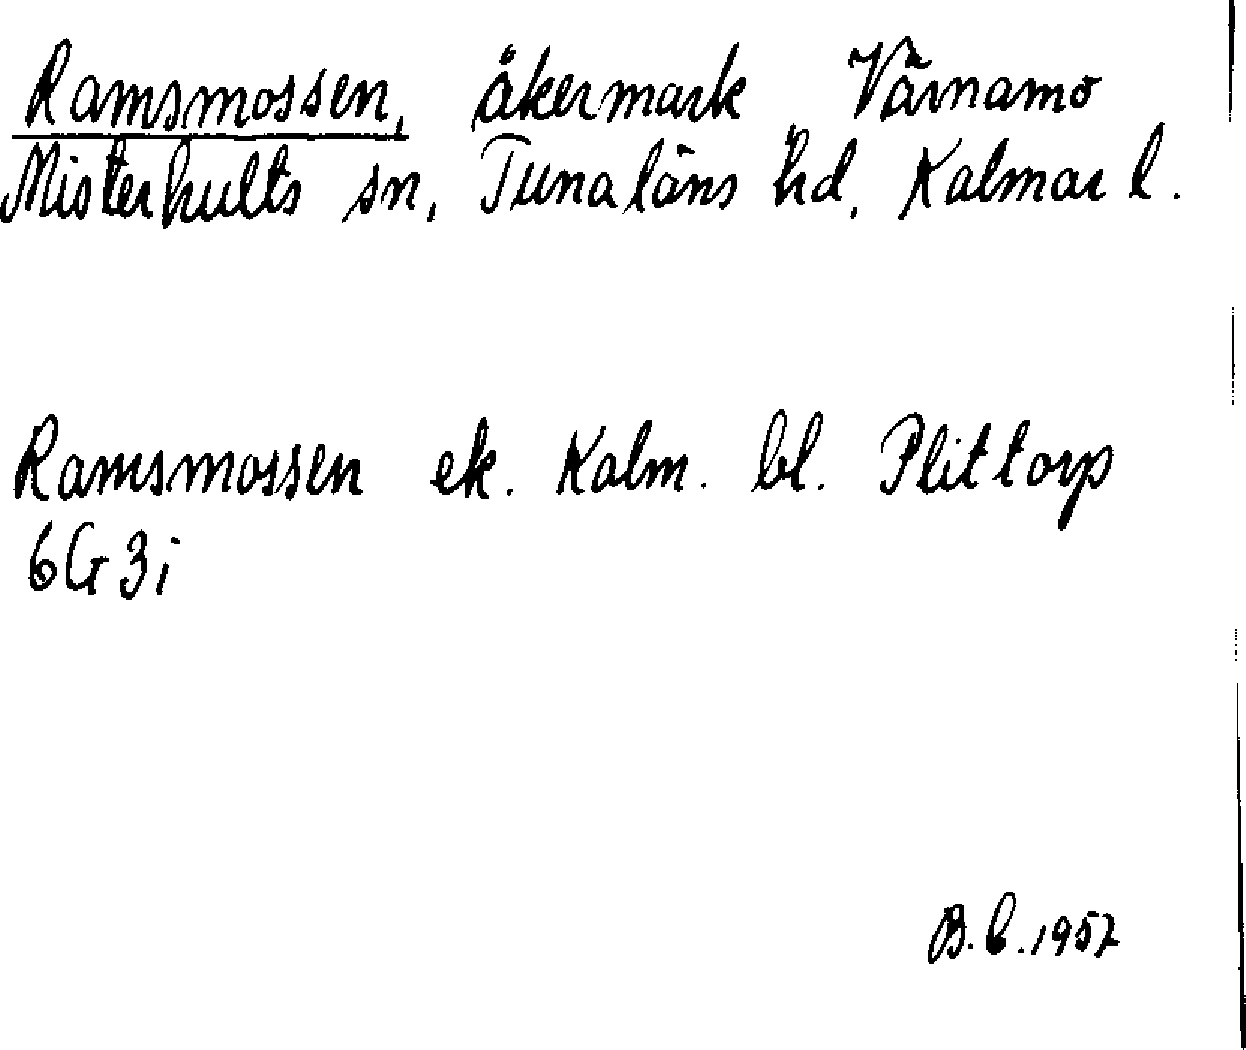 Ramsmossen, åkermark Värnamo
Misterhults sn, Tunaläns hd, Kalmar l.
Ramsmossen ek. Kalm. bl. Plittorp
6G3i
B.C.1957